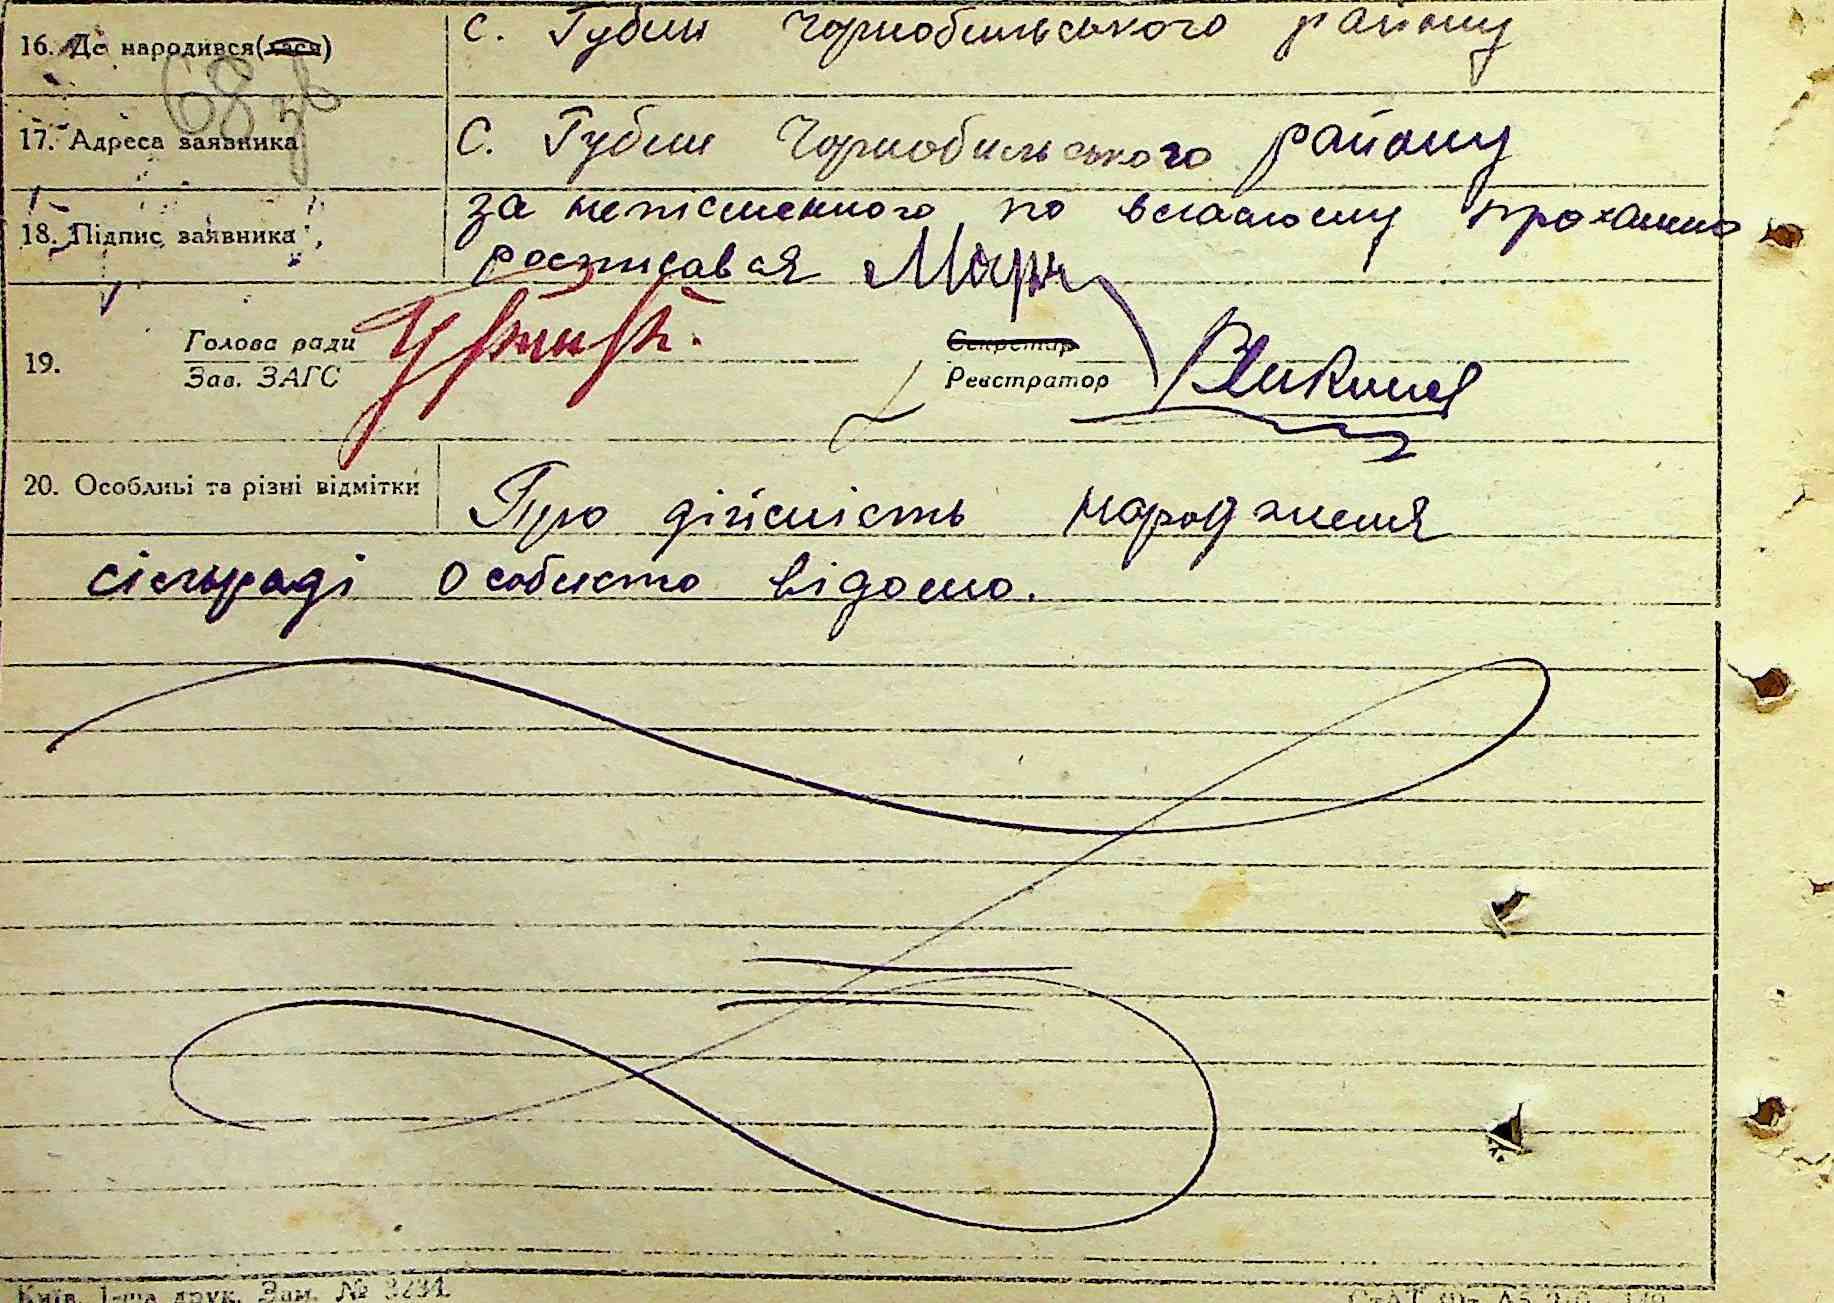 16. Де народився(лася) с. Губин Чорнобильського району
68 зв
17. Адреса заявника С. Губин Чорнобильського району
18. Підпис заявника за неписменного по власному проханню
росписався
19. Голова ради Секретар
Зав. ЗАГС Реєстратор
20. Особливі та різні відмітки Про дійсність народження
сільраді особисто відомо.
Київ, 1-ша друк. Зам. № 3234.